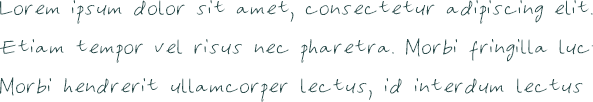 Lorem ipsum dolor sit amet, consectetur adipiscing elit.
Etiam tempor vel risus nec pharetra. Morbi fringilla luc
Morbi hendrerit ullamcorper lectus, id interdum lectus